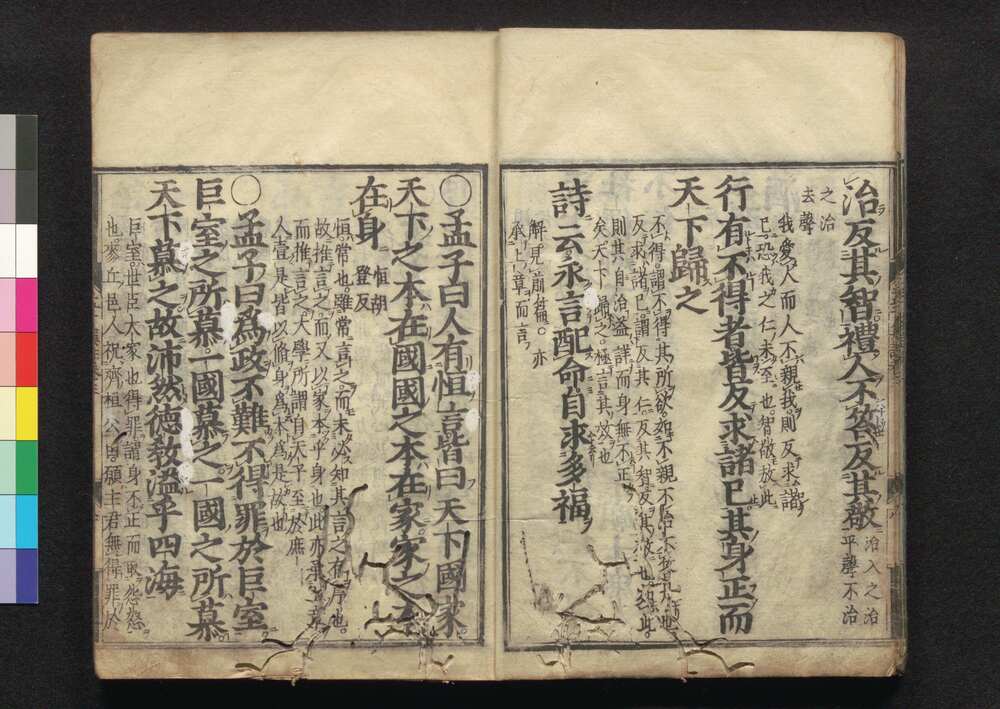 治反其智禮人不答反其敬治人之治平聲不治
之治去聲
我愛人而人不親我則反求諸
己恐我之仁未至也智敬放此
行有不得者皆反求諸己其身正而
天下歸之
不得謂不得其所欲如不親不治不答是也
反求諸己謂反其仁反其智反其敬也如此
則其自治益詳而身無不正
矣天下歸之極言其效也
詩云永言配命自求多福
解見前篇亦
承上章而言
○孟子曰人有恒言皆曰天下國家
天下之本在國國之本在家家之本
在身恒胡登反
恒常也雖常言之而未必知其言之有序也
故推言之而又以家本乎身也此亦承上章
而推言之大學所謂自天子至於庶
人壹是皆以脩身爲本爲是故也
○孟子曰爲政不難不得罪於巨室
巨室之所慕一國慕之一國之所慕
天下慕之故沛然德敎溢乎四海
巨室世臣大家也得罪謂身不正而取怨怒
也麥丘邑人祝齊桓公曰願主君無得罪於